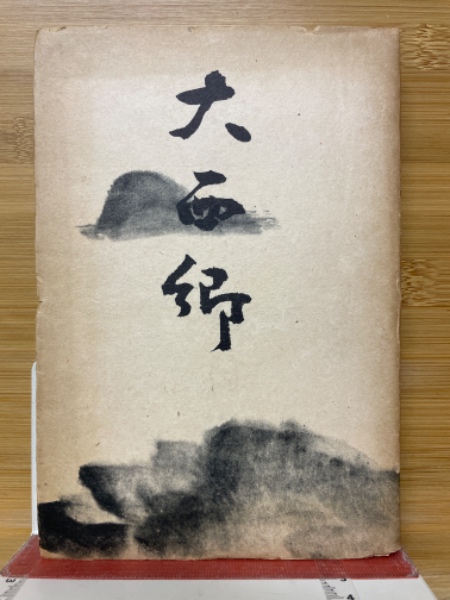 大西郷